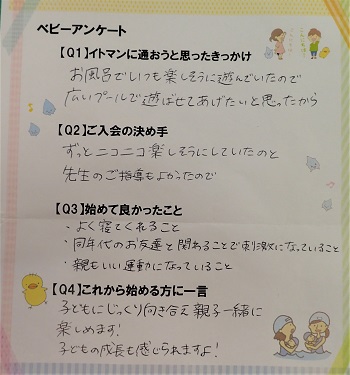 ベビーアンケート
【Q1】イトマンに通おうと思ったきっかけ
お風呂でいつも楽しそうに遊んでいたので
広いプールで遊ばせてあげたいと思ったから
【Q2】ご入会の決め手
ずっとニコニコ楽しそうにしていたのと
先生のご指導もよかったので
【Q3】始めて良かったこと
・よく寝てくれること
・同年代のお友達と関わることで刺激になっていること
・親もいい運動になっていること
【Q4】これから始める方に一言
子どもにじっくり向き合え親子一緒に
楽しめます!
子どもの成長も感じられますよ!